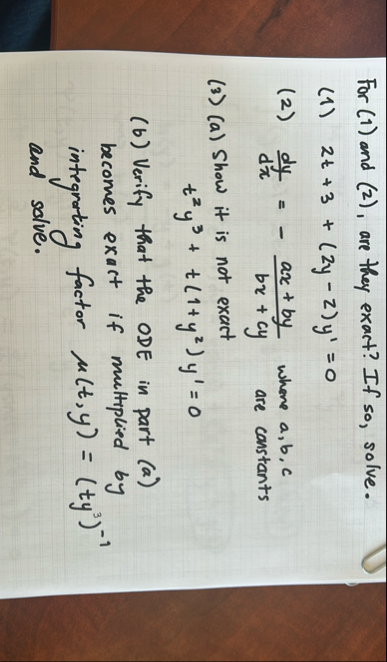 For (1) and (2), are they exact? If so, solve.
(1) 2t + 3 + (2y - 2) y' = 0
(2) dy/dx = - (ax + by)/(bx + cy) where a, b, c
are constants
(3) (a) Show it is not exact
t²y³ + t(1 + y²) y' = 0
(b) Verify that the ODE in part (a)
becomes exact if multiplied by
integrating factor μ(t, y) = (ty³)⁻¹
and solve.